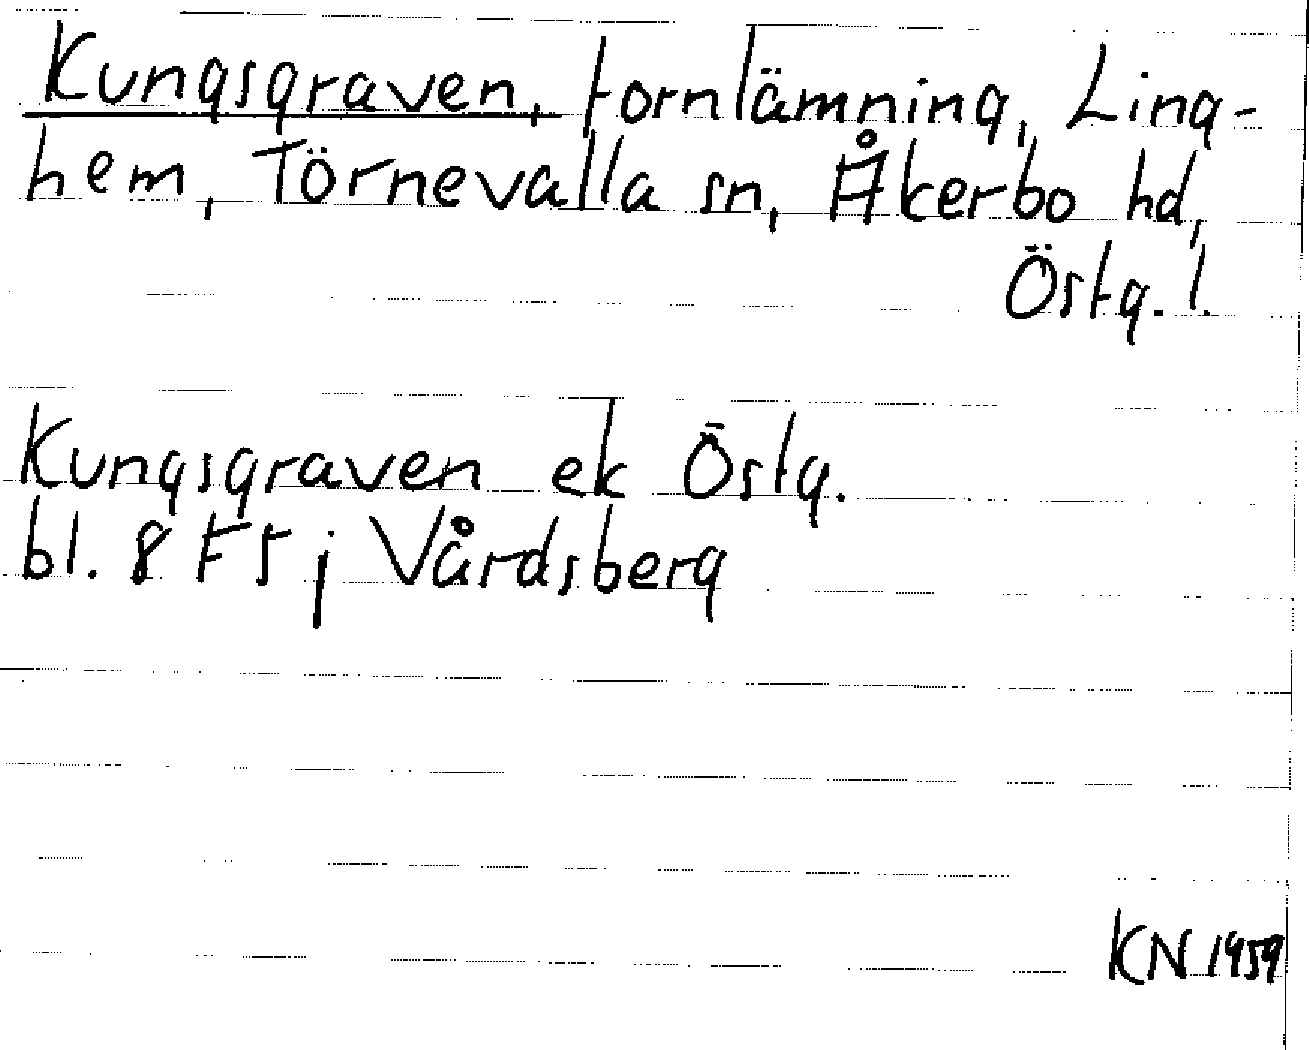 Kungsgraven, fornlämning, Ling-
hem, Törnevalla sn, Åkerbo hd,
Östg. l.
Kungsgraven ek Östg.
bl. 8 F5 j Vårdsberg
KN 1959